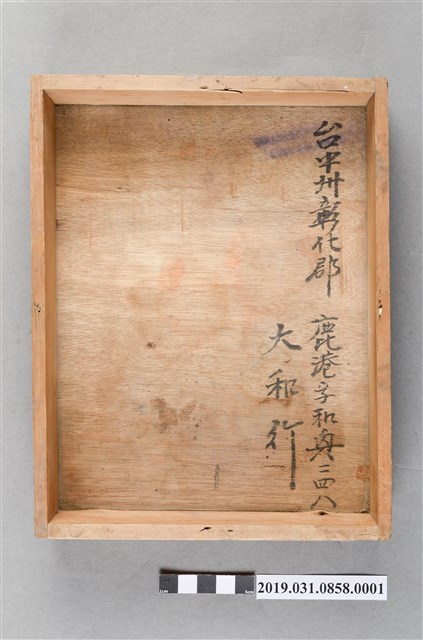 台中州彰化郡
鹿港字和興三四八
大和行
1cm
5cm
2019.031.0858.0001